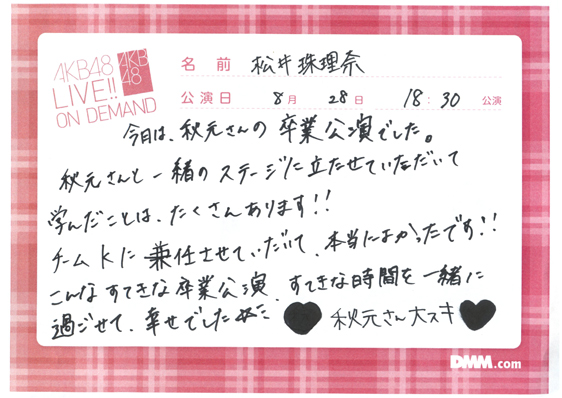 AKB48
LIVE!!
ON DEMAND
AKB
48
名 前 松井珠理奈
公演日 8月 28日 18:30 公演
今日は、秋元さんの卒業公演でした。
秋元さんと一緒のステージに立たせていただいて
学んだことは、たくさんあります!!
チームKに兼任させていだいて、本当によかったです!!
こんなすてきな卒業公演、すてきな時間を一緒に
過ごせて、幸せでした
秋元さん大スキ
DMM.com